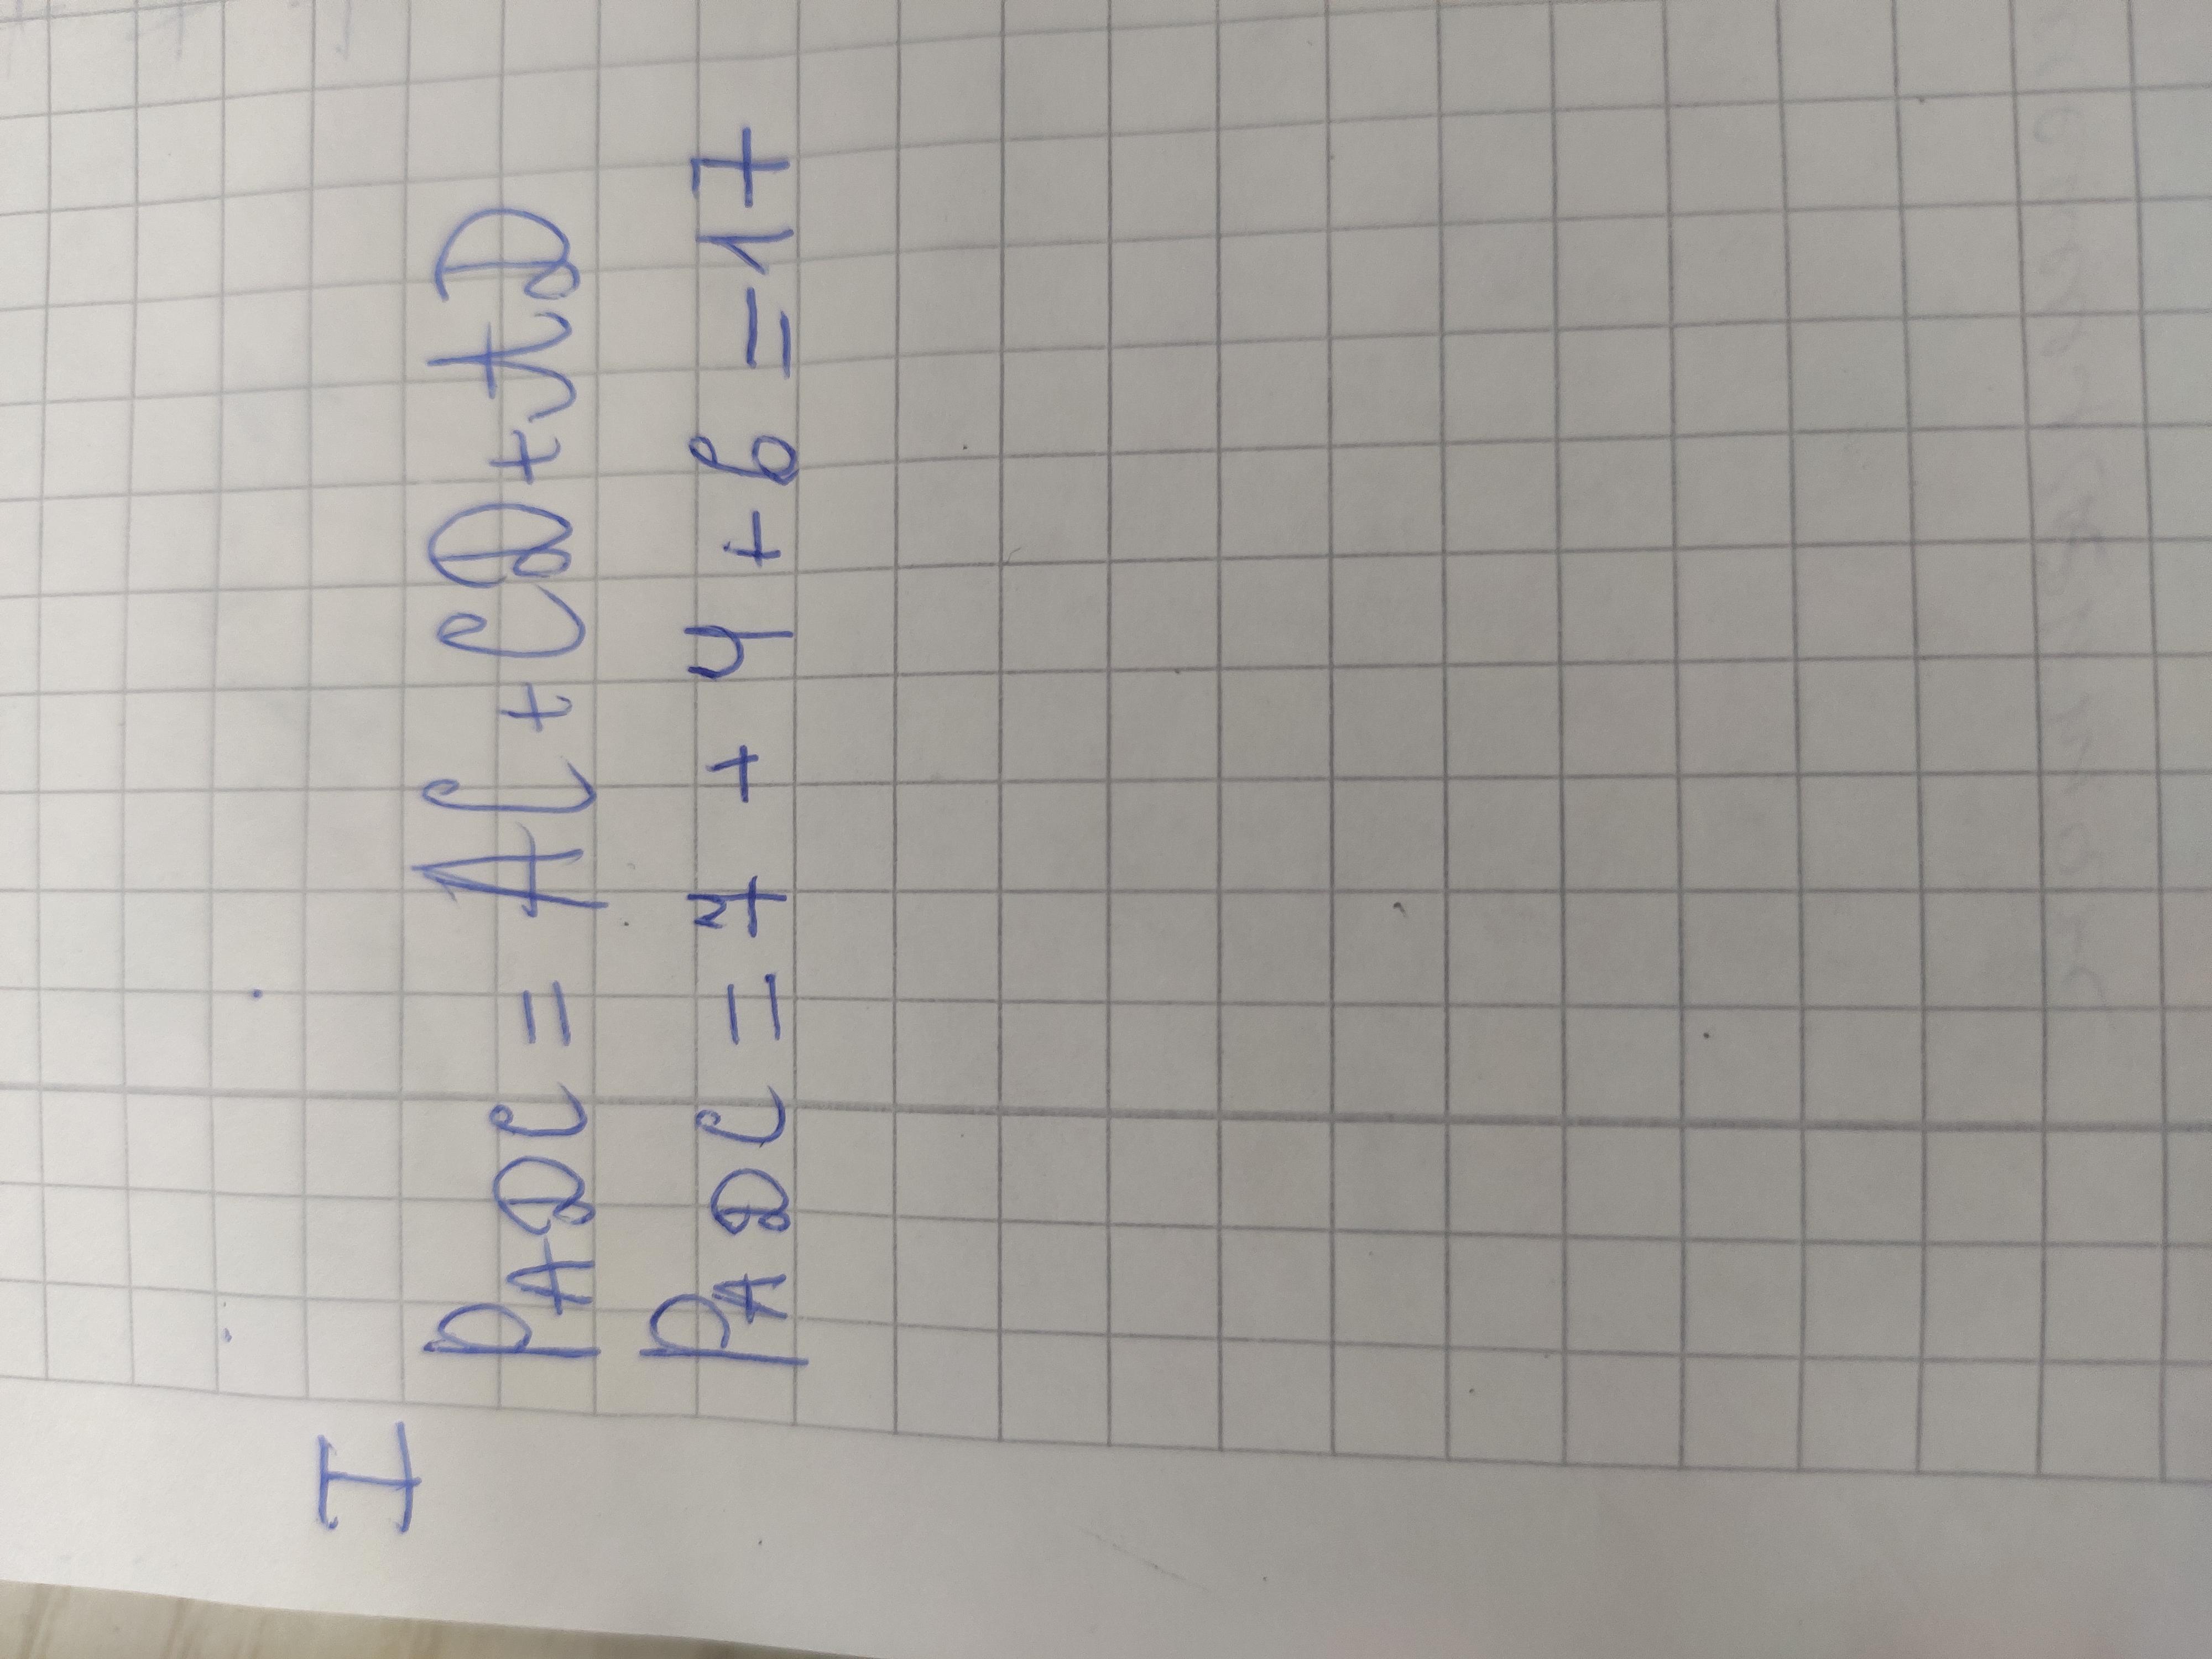 I
P ADC = AC + CD + AD
P ADC = 7 + 4 + 6 = 17